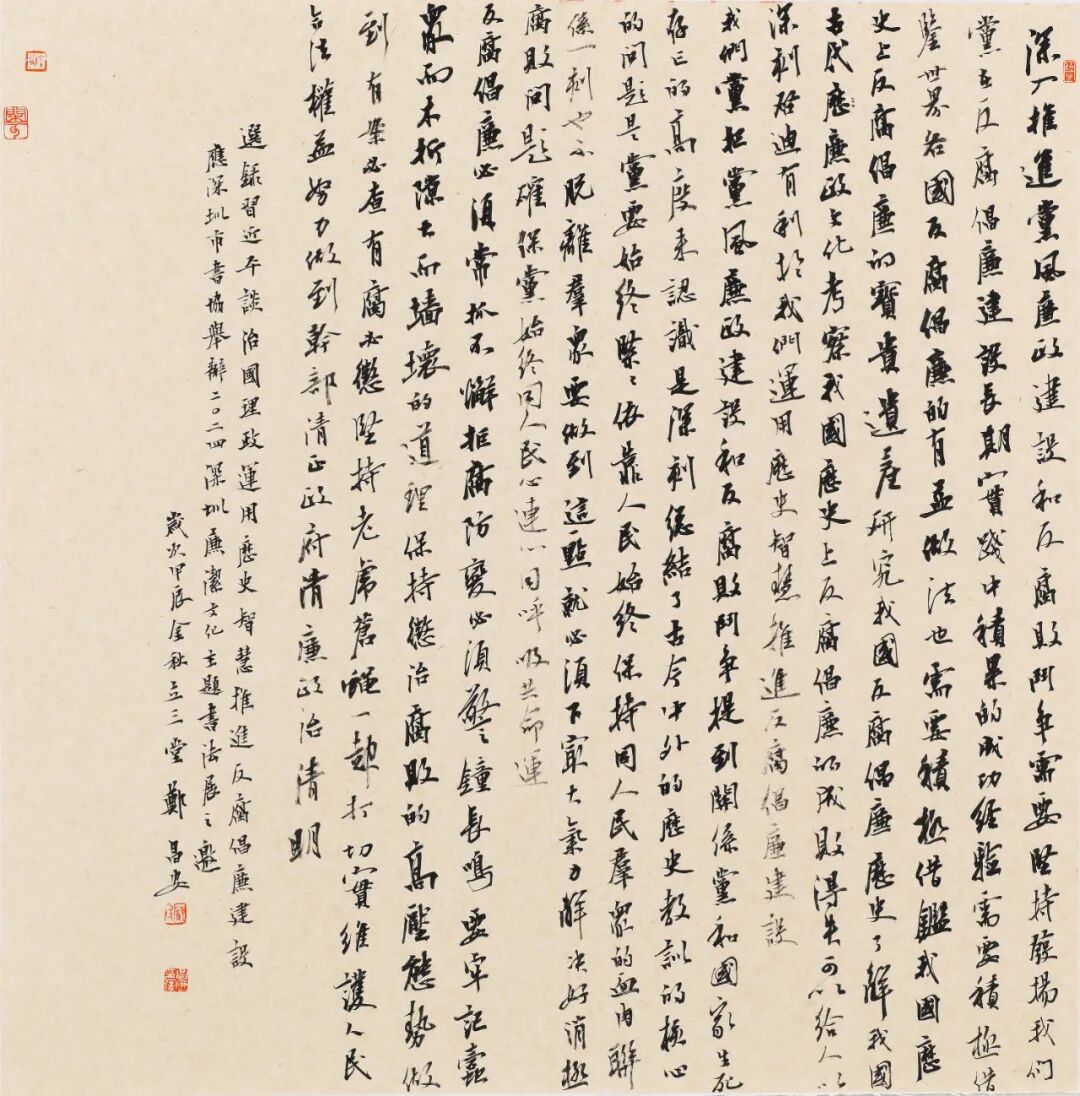 深入推進黨風廉政建設和反腐敗鬥爭需要堅持發揚我们
黨在反腐倡廉建設長期實踐中積累的成功经驗需要積極借
鑒世界各國反腐倡廉的有益做法也需要積極借鑑我國歷
史上反腐倡廉的寶貴遺產研究我國反腐倡廉歷史了解我國
古代歷廉政文化考察我國歷史上反腐倡廉的成敗得失可以給人以
深刻啓迪有利於我們運用歷史智慧推進反腐倡廉建設
我們黨把黨風廉政建設和反腐敗鬥爭提到關係黨和國家生死
存亡的高度来認識是深刻總結了古今中外的歷史教訓的核心
的問題是黨要始終緊〻依靠人民始終保持同人民羣眾的血肉聯
係一刻也不脫離羣眾要做到這一點就必須下最大氣力解决好消極
腐敗問題確保黨始終同人民心連心同呼吸共命運
反腐倡廉必須常抓不懈拒腐防變必須警〻鐘長鳴要牢記蠹
眾而木折隙大而墙壞的道理保持懲治腐敗的高壓態勢做
到有案必查有腐必懲堅持老虎蒼蠅一起打切實維護人民
合法權益努力做到幹部清正政府清廉政治清明
選録習近平談治國理政運用歷史智慧推進反腐倡廉建設
應深圳市書協舉辦二〇二四深圳廉潔文化主題書法展之邀
歲次甲辰金秋立三堂鄭昌安